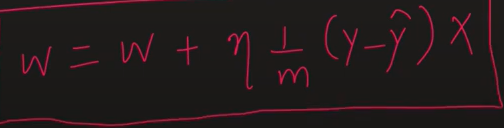 w = w + η 1/m (y-ŷ) X